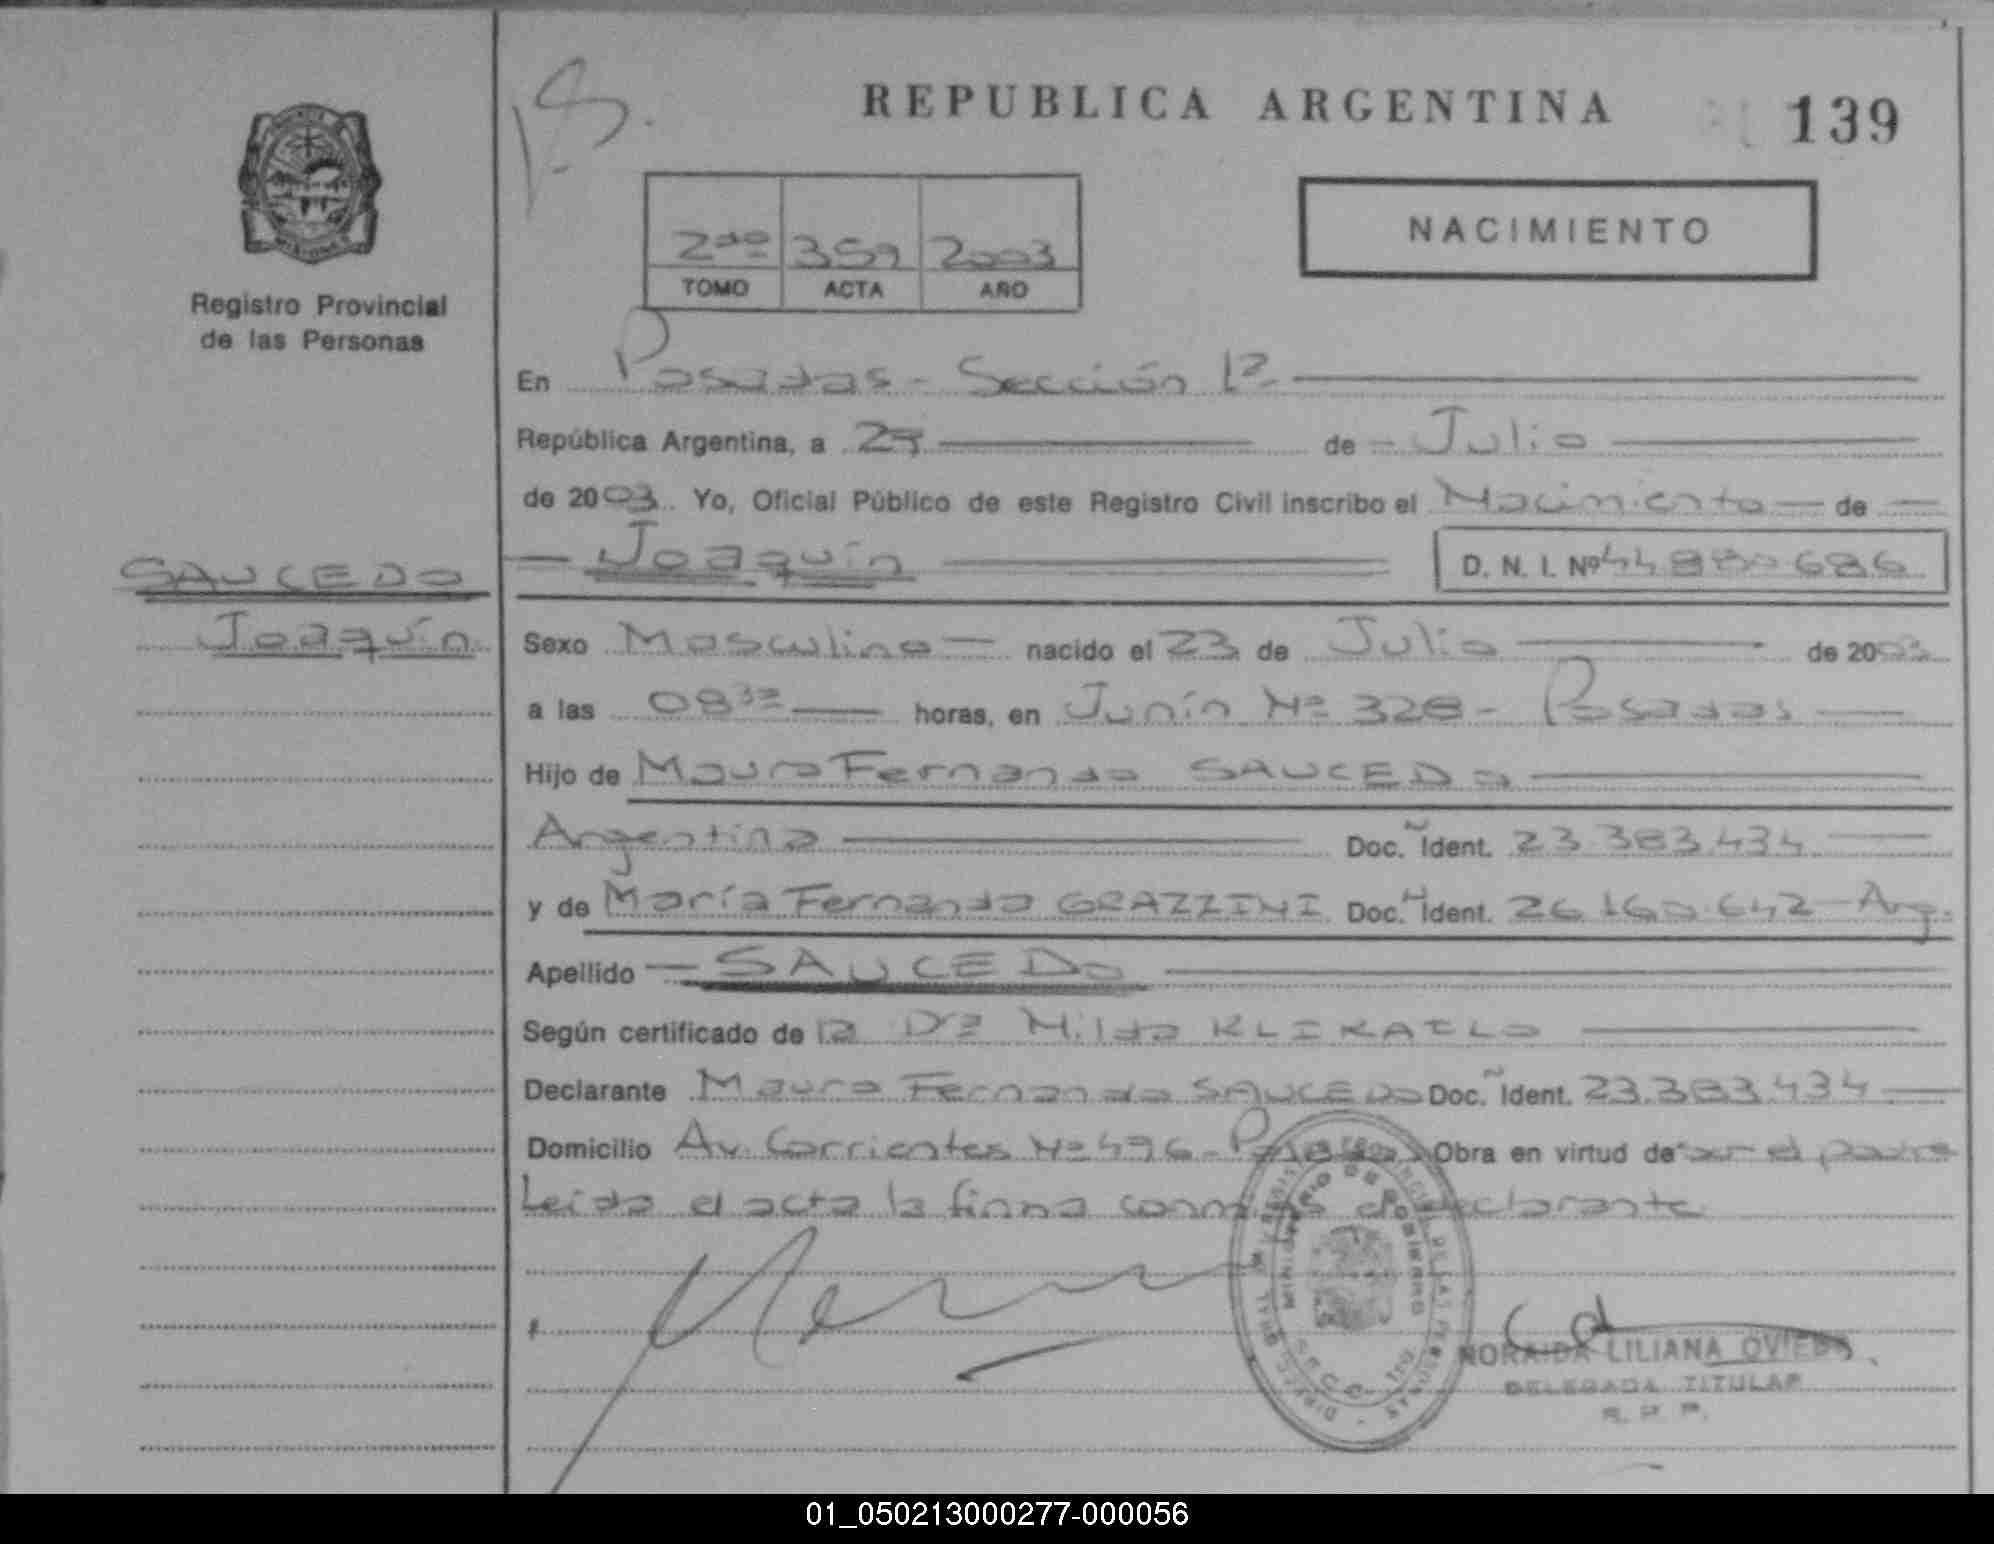 REPUBLICA ARGENTINA
139
NACIMIENTO
2do 359 2003
TOMO ACTA AÑO
Registro Provincial
de las Personas
En Posadas - Sección 1ª
República Argentina, a de Julio
de 2003. Yo, Oficial Público de este Registro Civil inscribo el Nacimiento de
Joaquín D. N. I. Nº 44.880.686
SAUCEDO
Joaquín
Sexo Masculino nacido el 23 de Julio de 2003
a las 08 30 horas, en Junín Nº 328 - Posadas
Hijo de Mauro Fernando SAUCEDO
Argentina Doc. Ident. 23.383.434
y de María Fernanda GRAZZINI Doc. Ident. 26.160.642 - Arg.
Apellido SAUCEDO
Según certificado de la Dra Nilda
Declarante Mauro Fernando SAUCEDO Doc. Ident. 23.383.434
Domicilio Av. Corrientes Nº 496 - Posadas Obra en virtud de ser el padre
Leida el acta la firma conmigo el declarante
MINISTERIO DE GOBIERNO
NORAIDA LILIANA OVIEDO
DELEGADA TITULAR
R. P. P.
01_050213000277-000056